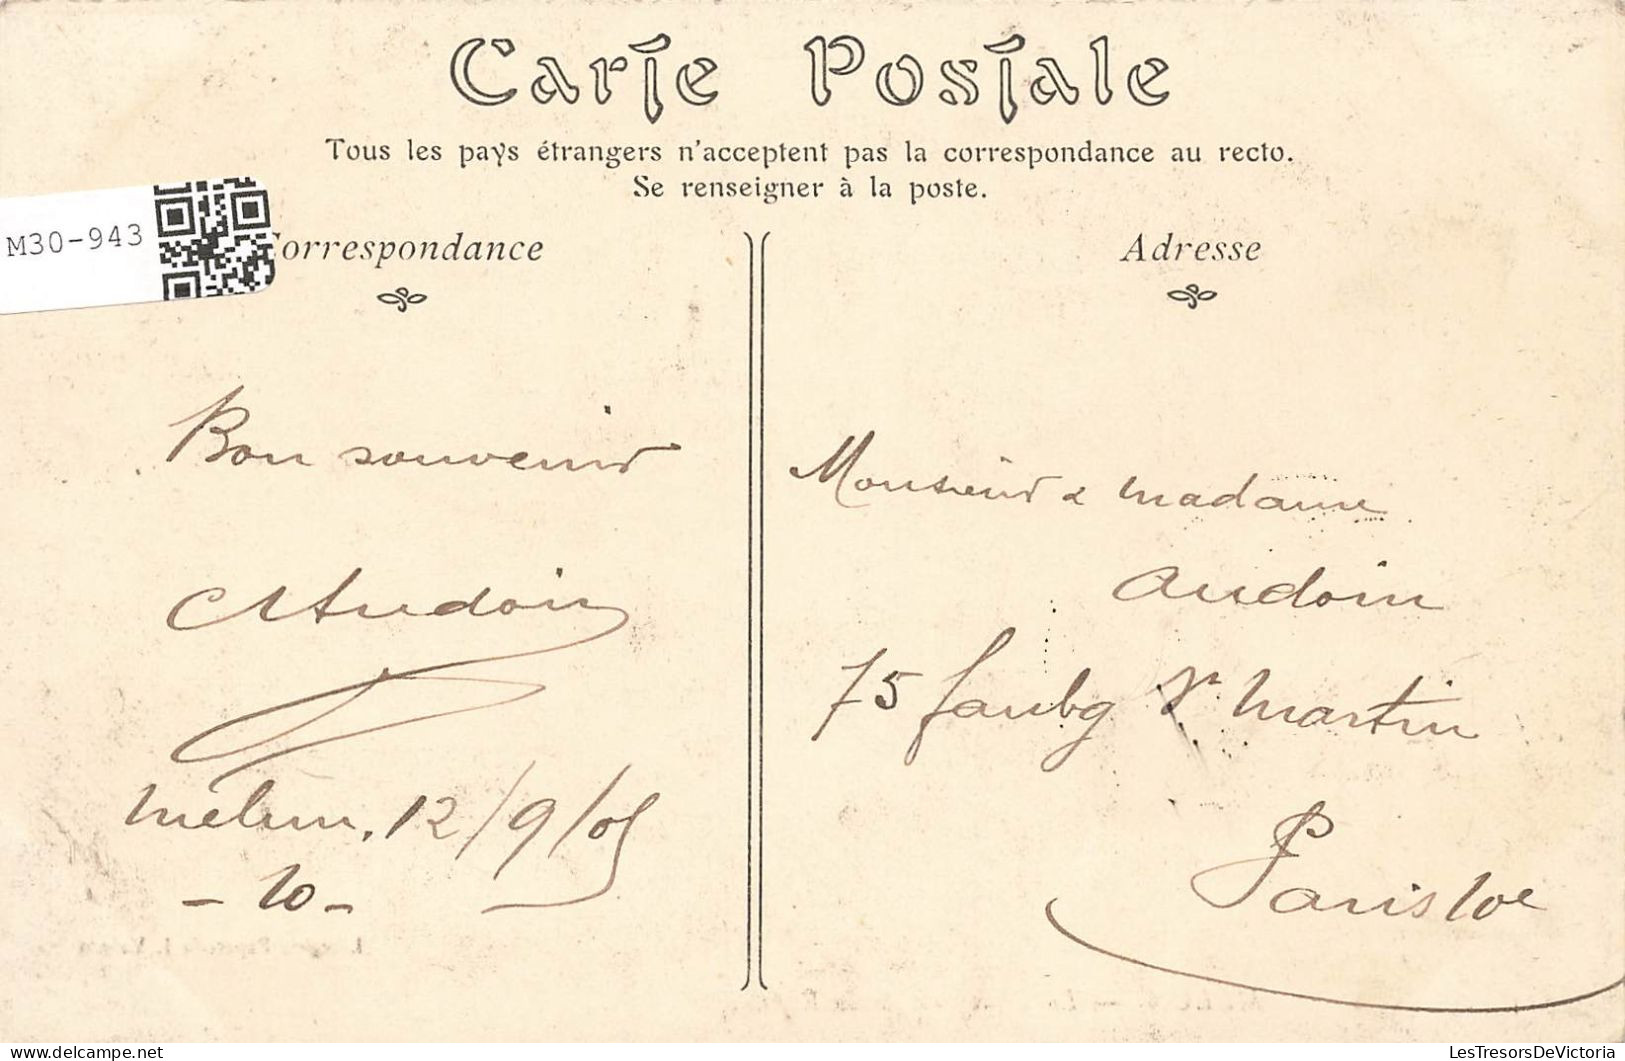 Carte Postale
Tous les pays étrangers n'acceptent pas la correspondance au recto.
Se renseigner à la poste.
M30-943
Correspondance
Adresse
Bon souvenir
Audoin
Mélun, 12/9/05
- 10 -
Monsieur & Madame
Audoin
75 faubg St Martin
Paris 10e
LesTresorsDeVictoria
www.delcampe.net